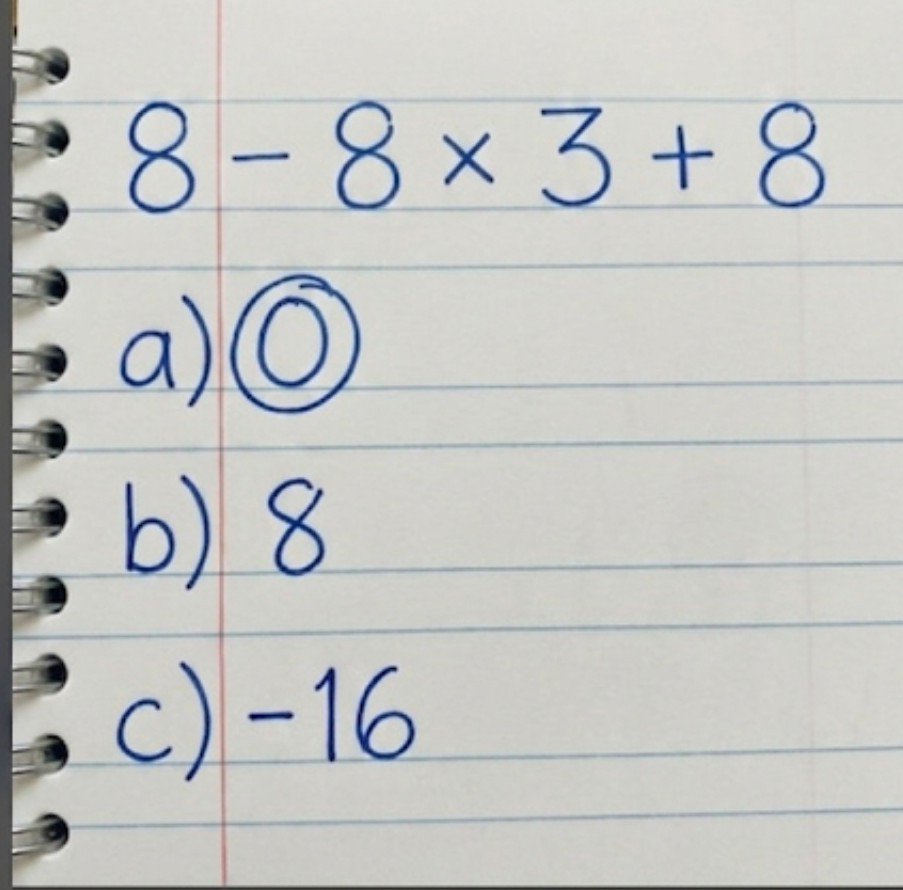 8 - 8 × 3 + 8
a) 0
b) 8
c) -16